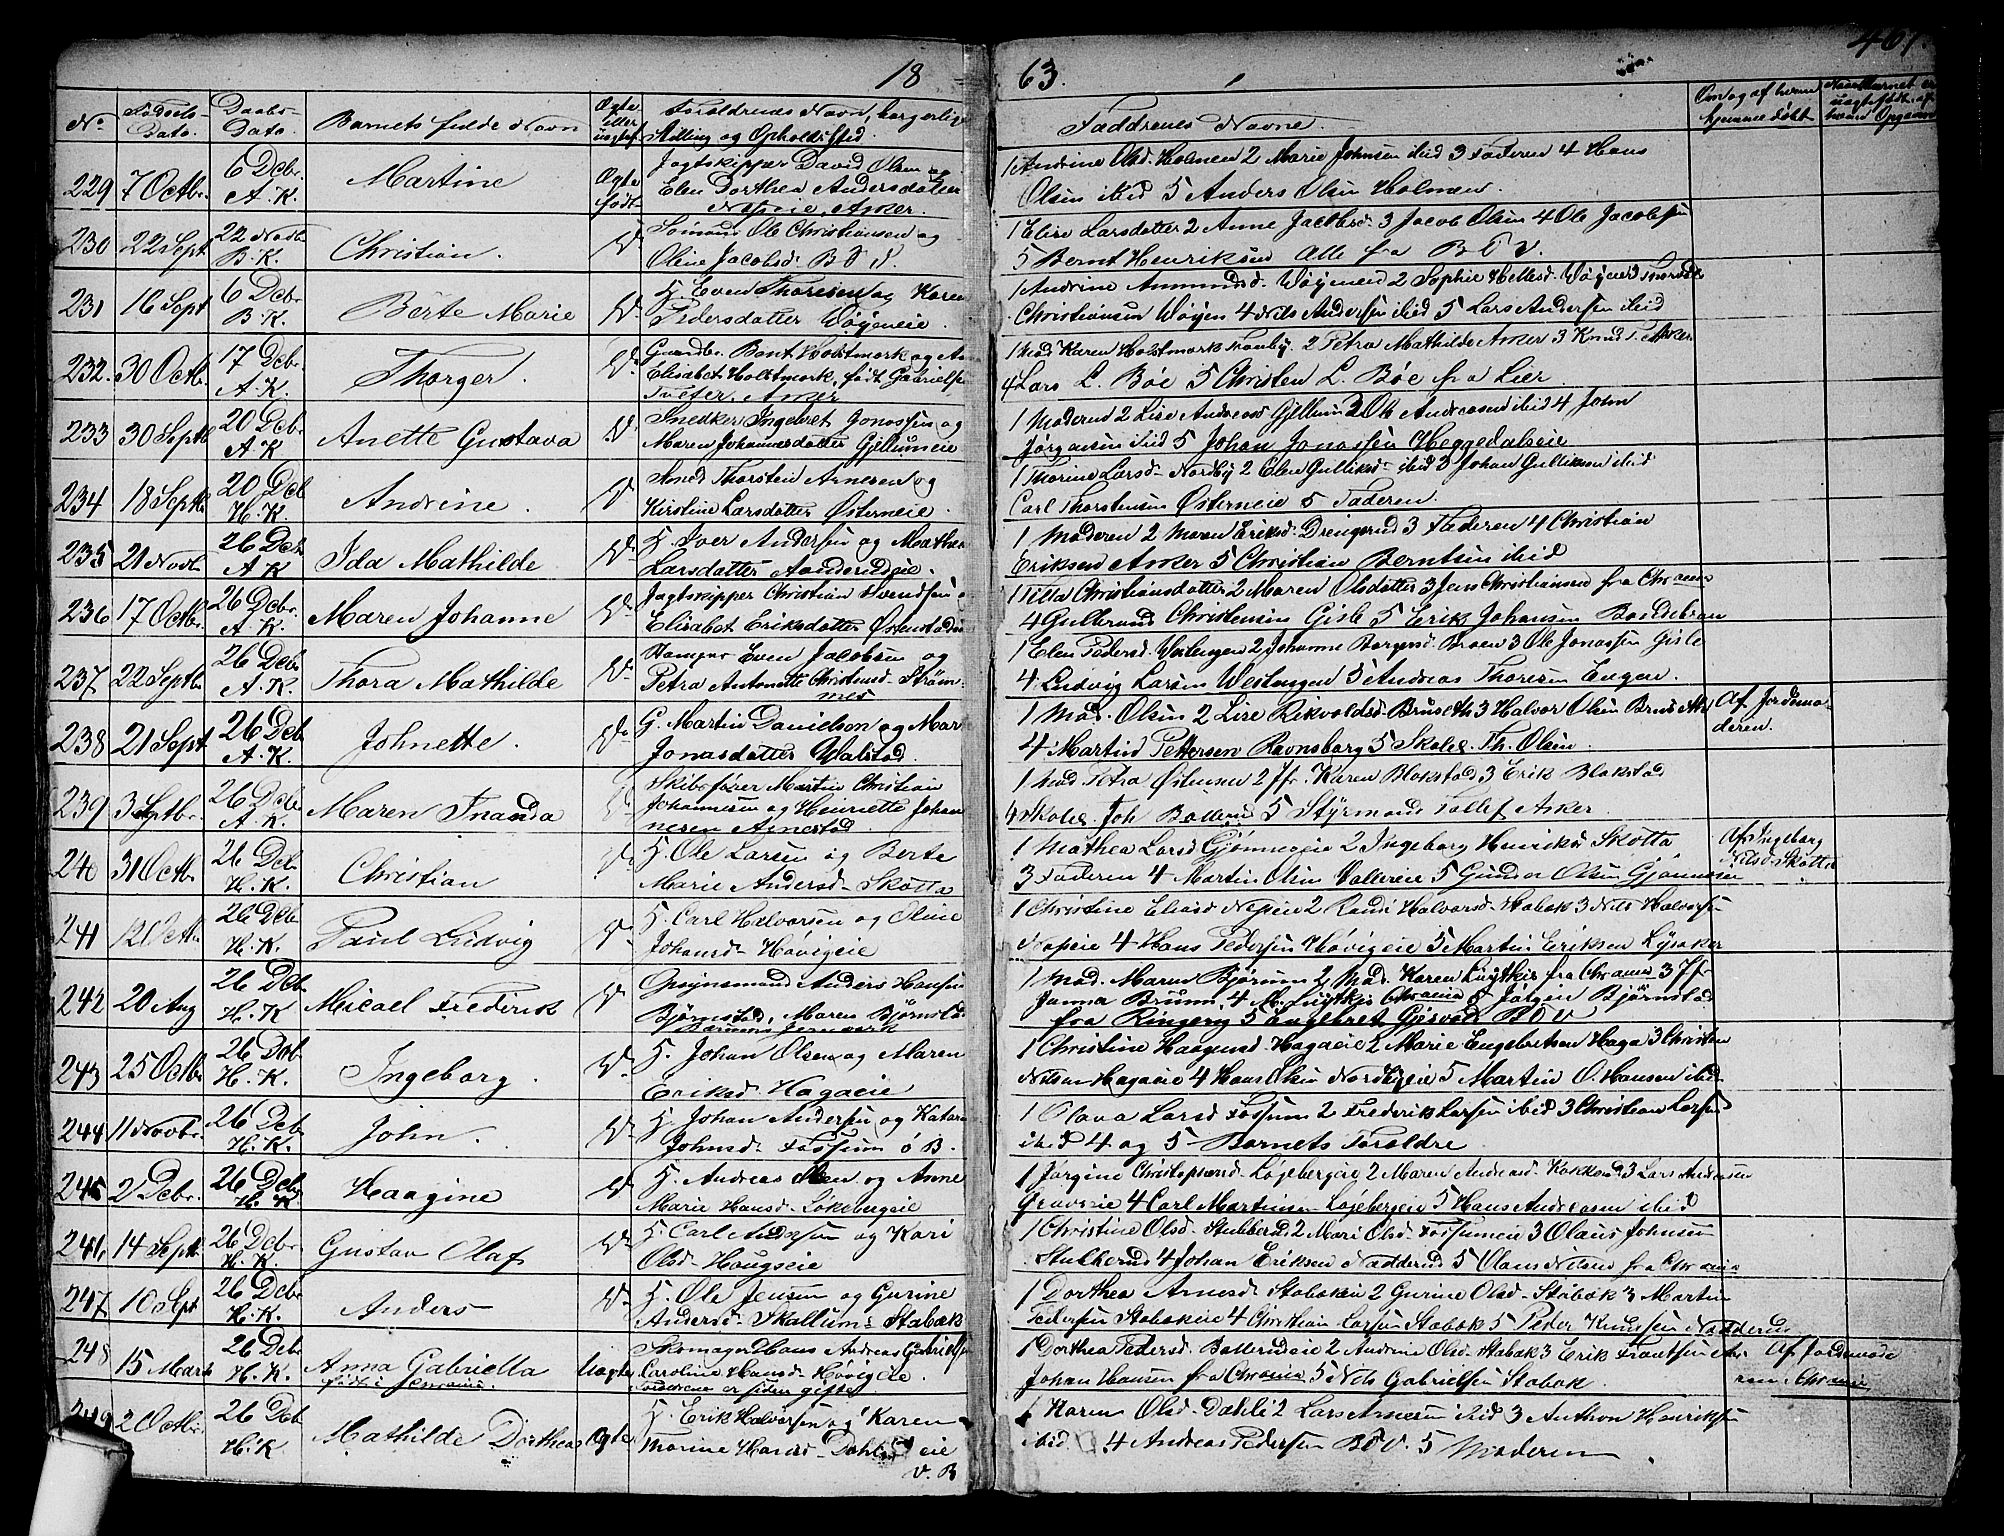 18
63.
461.
No.
Fødsels-
Dato.
Daabs-
Dato.
Barnets fulde Navn
Ægte
eller
uægtef.
Forældrenes Navn, borgerlige
Stilling og Opholdssted
Faddrenes Navne.
Om og af hvem
hjemmedøbt
229
7 Octbr.
6 Dcbr.
A. K.
Martine
Ægte
født
Jagtskipper David Olsen og
Elen Dorthea Andersdatter
Næsøeie, Asker.
1 Andrine Olsd. Holmen 2 Marie Johnsen ibid 3 Faderen 4 Hans
Olsen ibid 5 Anders Olsen Holmen.
230
22 Sept
22 Novbr
B. K.
Christian.
Do
Sømand Ole Christiansen og
Oline Jacobsd. B O V.
1 Elise Larsdatter 2 Anne Jacobsd. 3 Jacob Olsen 4 Ole Jacobsen
5 Bernt Henriksen Alle fra B O V.
231
16 Sept
6 Dcbr.
B. K.
Berte Marie
Do
H. Even Thoresen og Karen
Pedersdatter Wøyeneie.
1 Andrine Ammundsd. Wøyeneie 2 Sophie Hellesd. Wøyen 3
Christiansen Wøyen 4 Nils Andersen ibid 5 Lars Andersen ibid
232.
30 Octb.
17 Dcbr.
A. K.
Thorger.
Do
Gaardbr. Bent Holtsmark og
Elisabet Holtsmark, født Gabrielsen
Asker
1 Mad Karen Holtsmark Tronby. 2 Petra Mathilde Asker 3 Knud
4 Lars L. Bøe 5 Christen L. Bøe fra Lier.
233
30 Septb
20 Dcbr
A. K
Anette Gustava
Do
Snedker Ingebret Jonassen og
Maren Johannesdatter Gjellumeie
1 Moderen 2 Lise Andreasd Gjellum 3 Ole Andreasen ibid 4 John
Jørgensen ibid 5 Johan Jonassen Heggedalseie
234
18 Septb
20 Dcb
H. K
Andrine.
Do
Smed Thorsten Arnesen og
Kirstine Larsdatter Østerneie.
1 Thorine Larsd- Nordby 2 Elen Gulliksd- ibid 3 Johan Gulliksen ibid
Carl Thorstensen Østerneie 5 Faderen
235
21 Novb
26 Dcb
A K
Ida Mathilde
Do
H. Iver Andersen og Mathea
Larsdatter Aanderudeie.
1 Moderen 2 Maren Eriksd- Drengsrud 3 Faderen 4 Christian
Eriksen Asker 5 Christian Berntsen ibid
236
17 Octbr.
26 Dcbr.
A. K.
Maren Johanne
Do
Jagtskipper Christian Svendsen og
Elisabet Eriksdatter Østenstad
1 Tilla Christiansdatter 2 Maren Olsdatter 3 Jens Christiansen fra Chrania
4 Gulbrand Christensen Gisle 5 Erik Johansen
237
22 Septb
26 Dcbr
A. K.
Thora Mathilde
Do
Tømmer Even Jacobsen og
Petra Antonette Christensd- Strøm-
mes
1 Elen Pedersd. Westengen 2 Johanne Borgersd. Braaen 3 Ole Jonassen Gisle
4 Ludvig Larsen Westengen 5 Andreas Thoresen Engen.
238
21 Sept
26 Dcb
A. K.
Johnette.
Do
G. Martin Danielson og Mari
Jonasdatter Walstad
1 Mad. Olsen 2 Lise Rikvoldsd- Bruseth 3 Halvor Olsen Bruseth
4 Martin Pettersen Ravnsborg 5 Skolel. Th. Olsen.
Af Jordemo-
deren.
239
3 Septbr.
26 Dcbr
A. K.
Maren Inanda
Do
Skibsfører Martin Christian
Johannesen og Henriette Johan-
nesen Arnestad.
1 Mad Petra Østensen 2 Jfr. Karen Blakstad 3 Erik Blakstad
4 Skolel. Joh. Ballerud 5 Styrmand Tollef Asker
240
31 Octb.
26 Dcbr
H. K.
Christian
Do
H. Ole Larsen og Berte
Marie Andersd- Skotta
1 Mathea Larsd Gjønneseie 2 Ingeborg Henriksd Skotta
3 Faderen 4 Martin Olsen Vallereie 5 Gunder Olsen Gjønneseie
Af Ingeborg
Nilsd. Skotta
241
12 Octb
26 Dcb
H. K.
Paul Ludvig
Do
H. Carl Halvorsen og Oline
Johansd- Høvigeie
1 Christine Eliasd Næseie 2 Randi Halvorsd- Stabæk 3 Nils Halvorsen
4 Hans Pedersen Høvigeie 5 Martin Eriksen Lysaker
242
20 Aug
26 Dcb
H. K
Micael Frederik
Do
Opsynsmand Anders Hansen
Bjørnstad, Maren Bjørnstad
Bærums Jernværk
1 Mad. Maren Bjørum 2 Mad. Karen Lüytkis fra Chrania 3 Jfr
Janna Brunn, 4 M. Lüytkis Chrania 5 Jørgen Bjørnstad
fra Ringerig 5 Engebret Gjesvad B O V
243
25 Octbr
26 Dcb
H. K.
Ingeborg.
Do
H. Johan Olsen og Maren
Eriksd- Hagaeie
1 Christine Haagensd- Hagaeie 2 Marie Engebretsen Haga 3 Christen
Nilsen Hagaeie 4 Hans Olsen Nordbyeie 5 Martin O. Hansen ibid
244
11 Novbr.
26 Dcb
H. K.
John.
Do
H. Johan Andersen og Katar
Johnsd- Fossum ø B.
1 Olava Larsd Fossum 2 Frederik Larsen ibid 3 Christian Larsen
ibid 4 og 5 Barnets Foraldre
245
2 Dcbr.
26 Dcbr
H. K.
Haagine
Do
H. Andreas Olsen og Anne
Marie Hansd- Løkebergeie
1 Jørgine Christophersd- Løjebergeie 2 Maren Andreasd- 3 Lars Andersen
4 Carl Martinsen Løjebergeie 5 Hans Andreasen ibid
246
14 Sept
26 Dcbr
H. K.
Gustav Olaf
Do
H. Carl Andersen og Kari
Olsd- Haugseie
1 Christine Olsd- Stubberud 2 Mari Olsd- Fossumeie 3 Olaus Johnsen
Stubberud 4 Johan Eriksen Nadderud 5 Olaus Nilsen fra Chrania
247
10 Sept
26 Dcbr
H. K.
Anders
Do
H. Ole Jensen og Gurine
Andersd- Skallum- Stabæk
1 Dorthea Arnesd- Stabækeie 2 Gurine Olsd- Stabæk 3 Martin
Pedersen Stabækeie 4 Christian Larsen Stabæk 5 Peder Knudsen Nadderud
248
15 Marts
26 Dcb
H. K.
Anna Gabriella
født i Chrania.
Uægte
Skomager Hans Andreas Gabrielsen
Caroline Hansd- Høvigeie.
Foraldrene er siden gifte
1 Dorthea Pedersd- Ballerudeie 2 Andrine Olsd- Stabæk 3 Erik Frantsen
Johan Hansen fra Chrania 5 Nils Gabrielsen Stabæk.
Af Jordemode
ren. Chrania
249
2 Octbr
26 Dcb
H. K
Mathilde Dorthea
Ægte
H. Erik Halvorsen og Karen
Thorine Hansd- Dahleie
V. B
1 Karen Olsd- Dahle 2 Lars Arnesen ibid 3 Anthon Henriksen
ibid. 4 Andreas Pedersen B O V. 5 Moderen